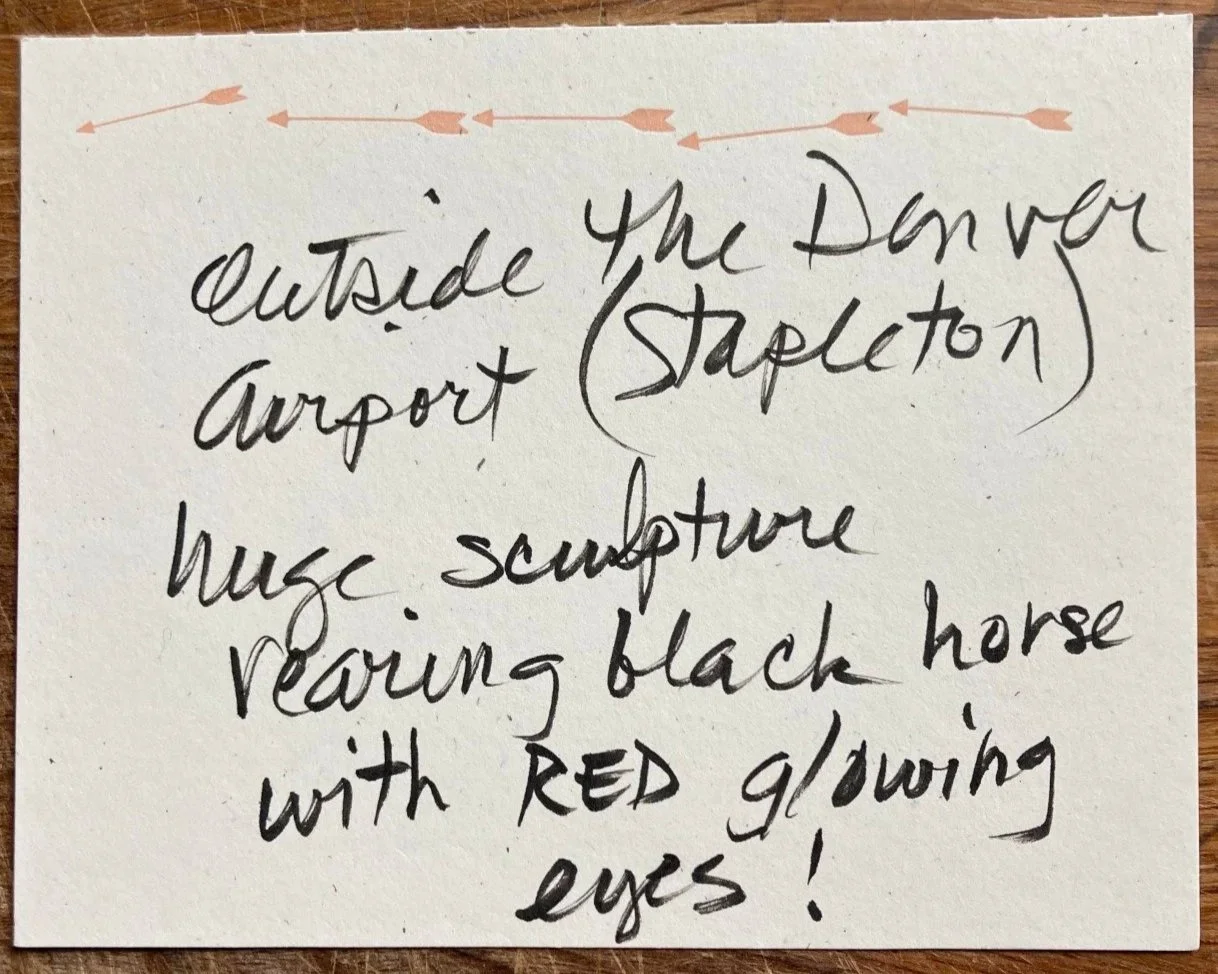 outside the Denver
airport (Stapleton)
huge sculpture
rearing black horse
with RED glowing
eyes!